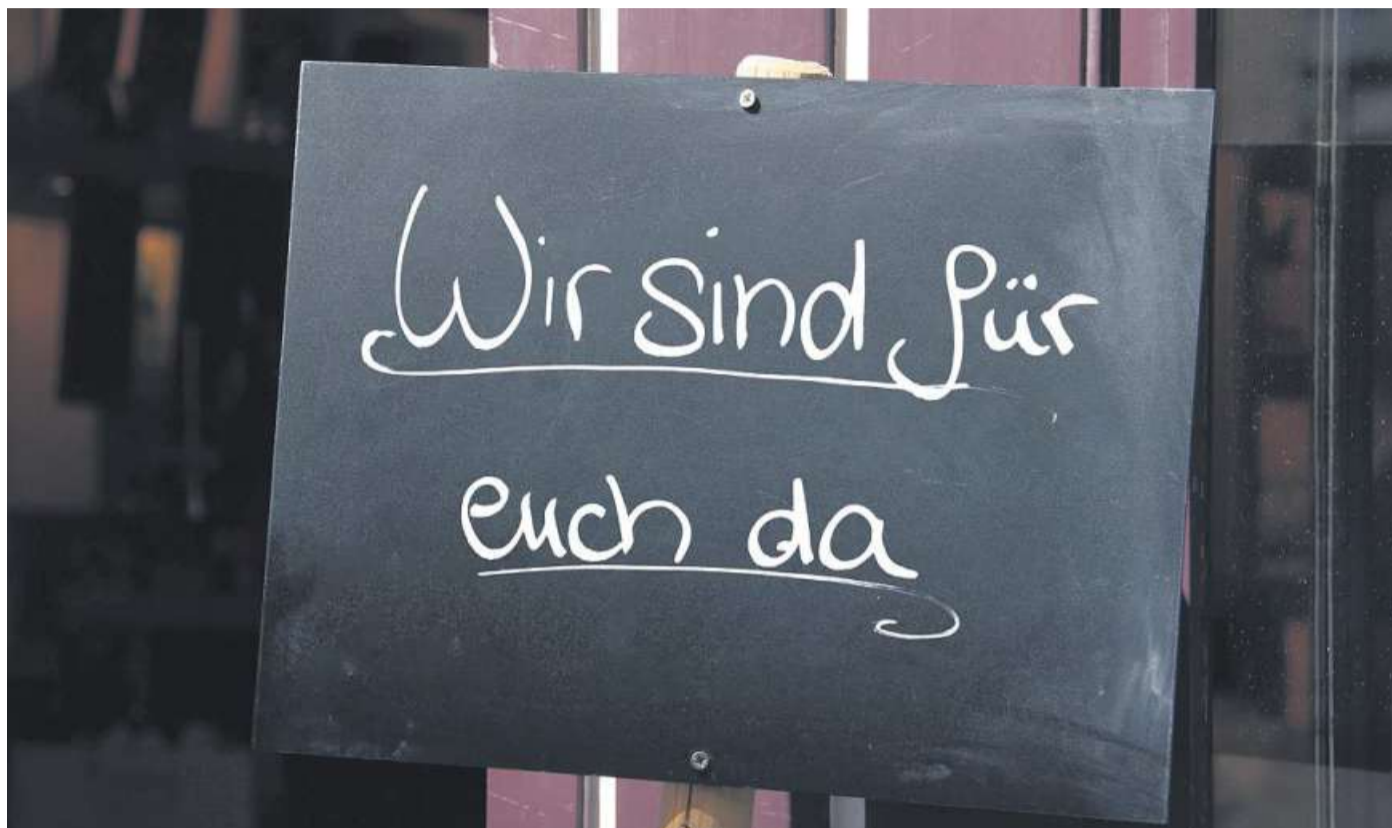 Wir sind für
euch da